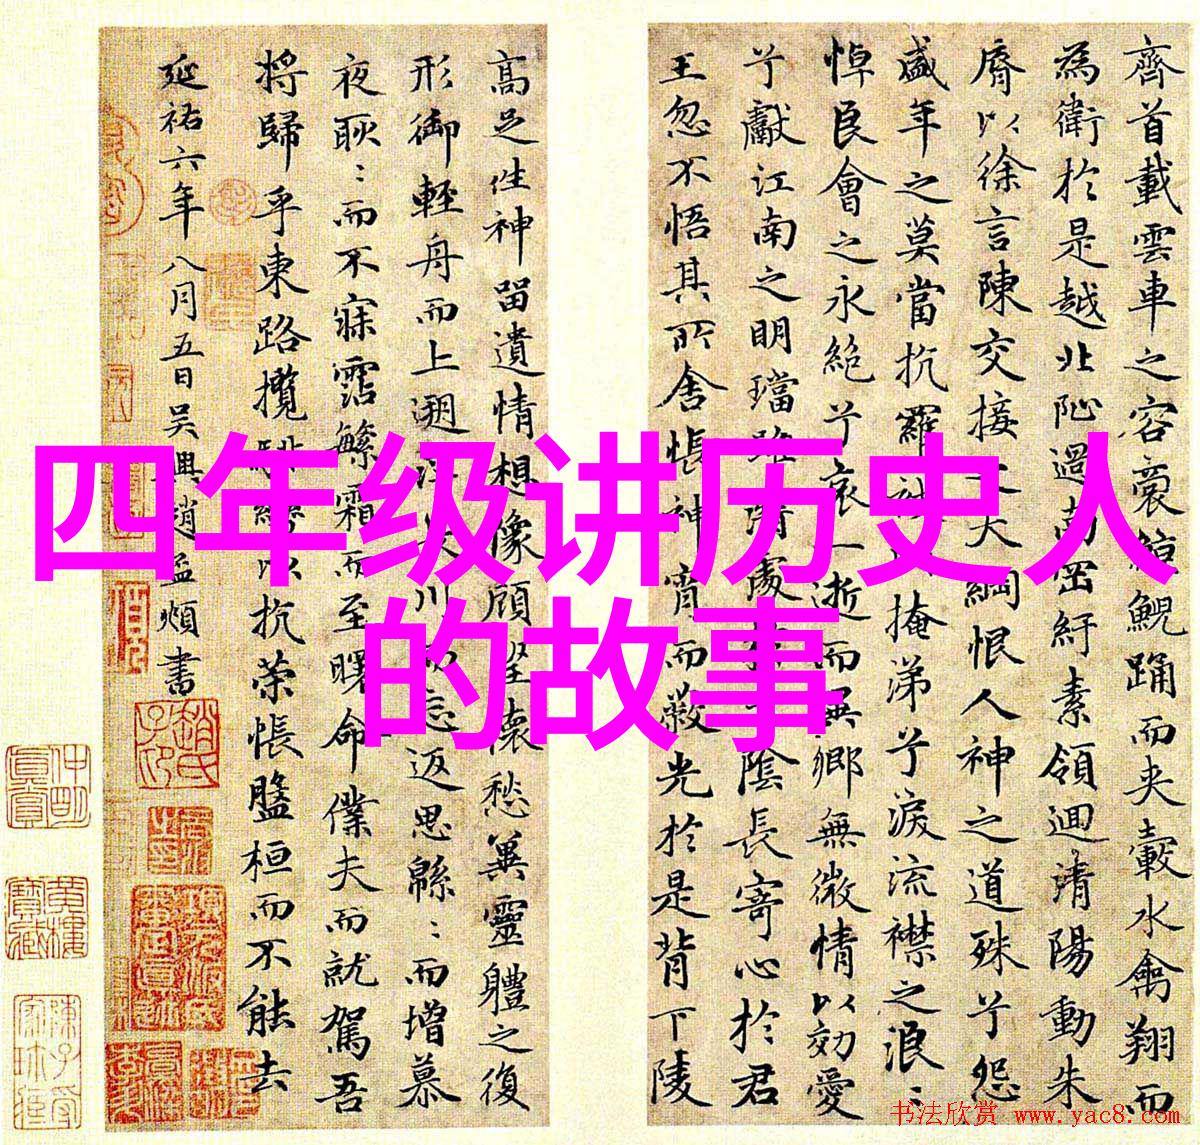 四年级讲历史人
的故事
齊首載雲車之容裔鯨鯢踊而夾轂水禽翔而
為衛於是越北沚過南岡紆素領迴清陽動朱
脣以徐言陳交接之大綱恨人神之道殊兮怨
盛年之莫當抗羅袂掩涕兮淚流襟之浪〻
悼良會之永絕兮哀一逝而異鄉無微情以効愛
兮獻江南之明璫雖潛處陰長寄心於君
王忽不悟其所舍悵神宵而蔽光於是背下陵
高足往神留遺情想像顧望懷愁冀靈體之復
形御輕舟而上遡川忘返思緜〻而增慕
夜耿〻而不寐霑繁霜而至曙命僕夫而就駕吾
將歸乎東路攬轡以抗策悵盤桓而不能去
延祐六年八月五日吳興趙孟頫書
书法欣赏 www.yac8.com